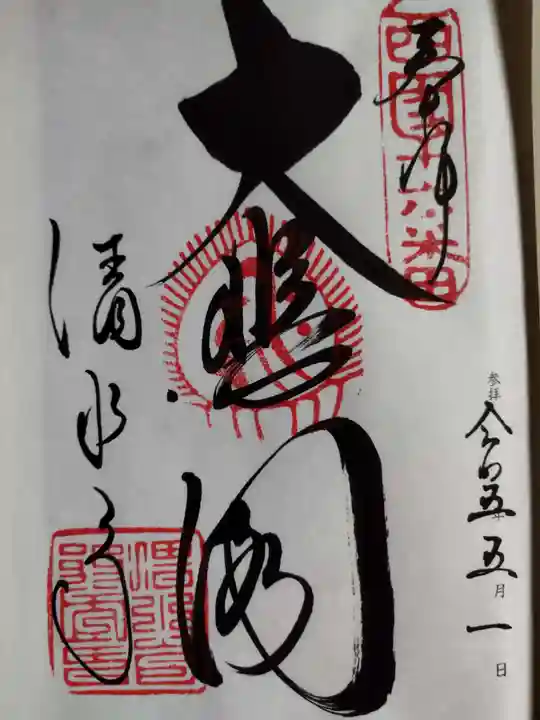 奉拝
西国十六番
大悲閣
清水寺
参拝 令和五年五月一日